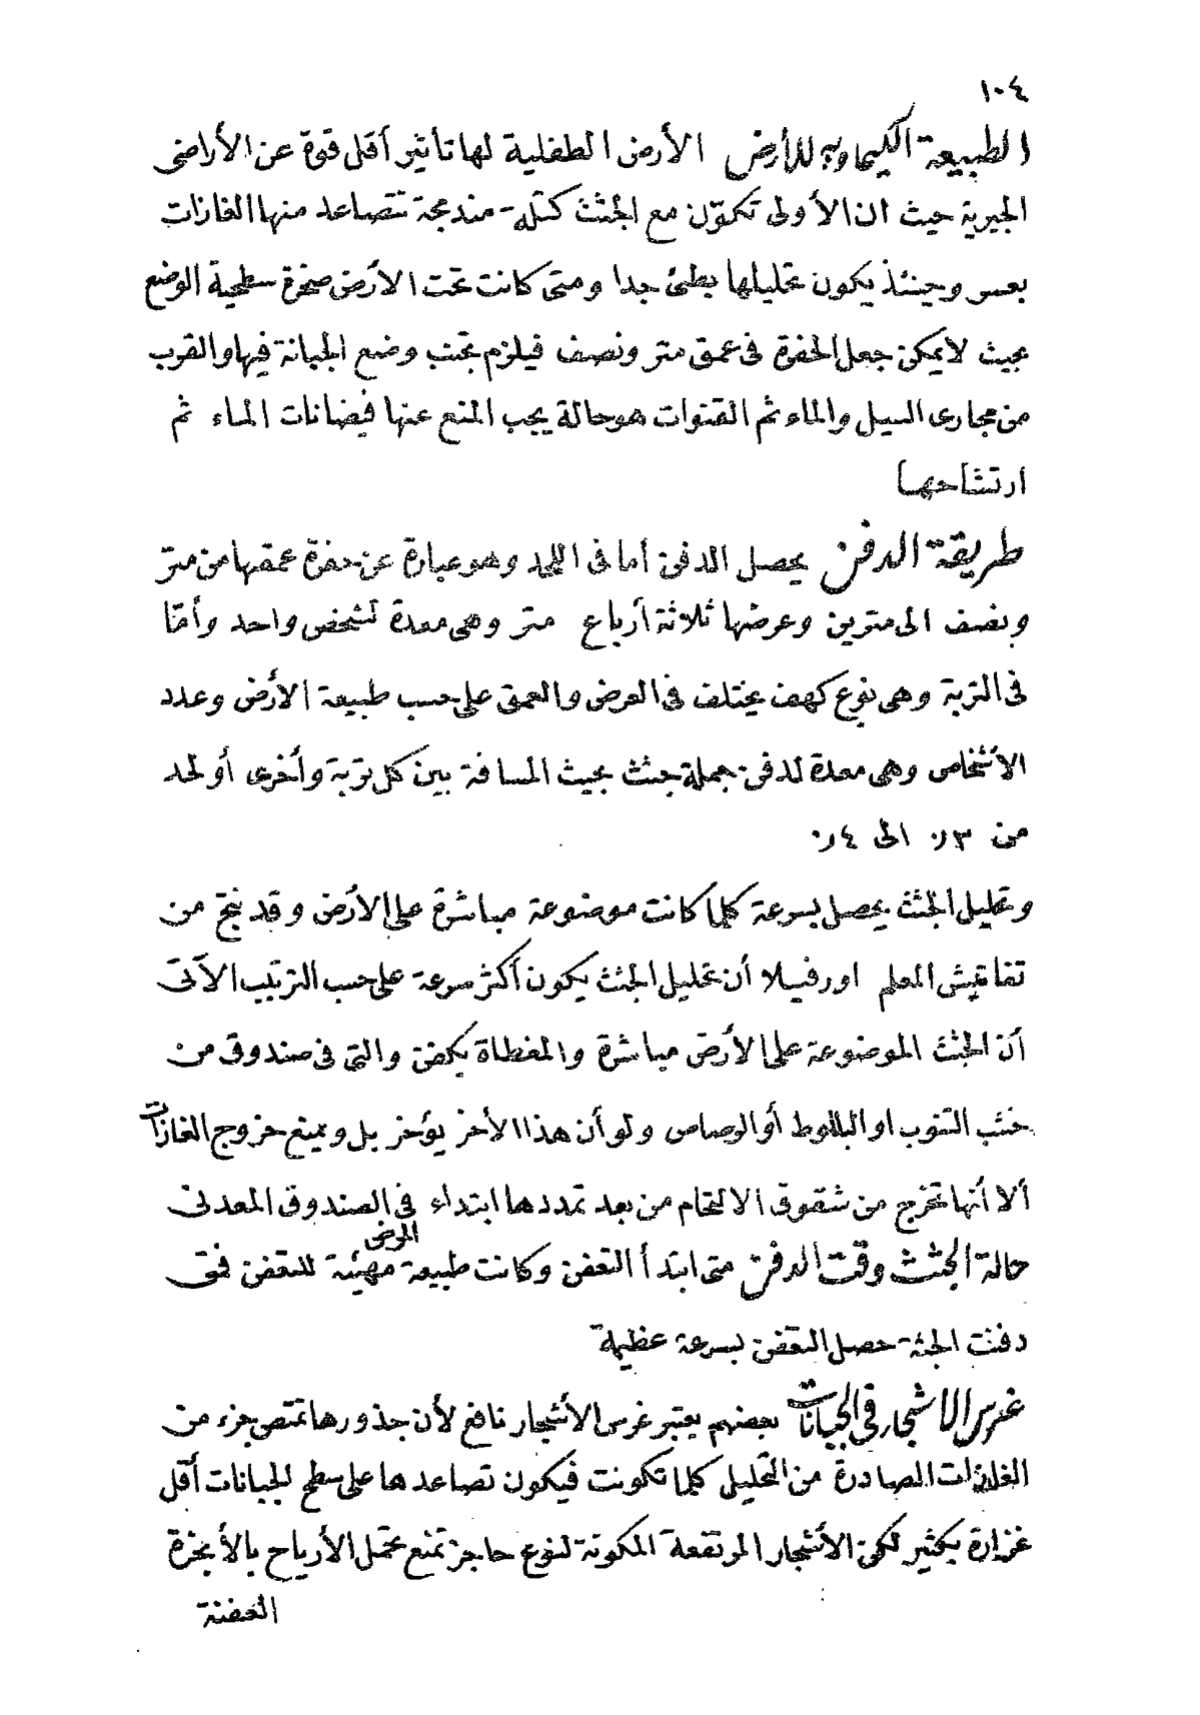 ١٠٤
الطبيعة الكيماوية للأرض الأرض الطفلية لها تأثير أقل قوة عن الأراضى
الجيرية حيث ان الأولى تكوّن مع الجثث كتلة مندمجة تتصاعد منها الغازات
بعسر وحينئذ يكون تحليلها بطئ جدا ومتى كانت تحت الأرض صخرة سطحية الوضع
بحيث لا يمكن جعل الحفرة فى عمق متر ونصف فيلزم تجنب وضع الجبانة فيها والقرب
من مجارى السيل والماء ثم القنوات هو حالة يجب المنع عنها فيضانات الماء ثم
ارتشاحها
طريقة الدفن يحصل الدفن أما فى اللحد وهو عبارة عن حفرة عمقها من متر
ونصف الى مترين وعرضها ثلاثة أرباع متر وهى معدة لشخص واحد وأمّا
فى التربة وهى نوع كهف يختلف فى العرض والعمق على حسب طبيعة الأرض وعدد
الأشخاص وهى معدة لدفن جملة جثث بحيث المسافة بين كل تربة وأخرى أو لحد
من ٣ر٠ الى ٤ر٠
وتحليل الجثث يحصل بسرعة كلما كانت موضوعة مباشرة على الأرض وقد نتج من
تفاتيش المعلم اورفيلا أن تحليل الجثث يكون أكثر سرعة على حسب الترتيب الآتى
أن الجثث الموضوعة على الأرض مباشرة والمغطاة بكفن والتى فى صندوق من
خشب التنوب او البللوط أو الرصاص ولو أن هذا الأخر يؤخر بل ويمنع خروج الغازات
ألا أنها تخرج من شقوق الالتحام من بعد تمددها ابتداء فى الصندوق المعدنى
حالة الجثث وقت الدفن متى ابتدأ التعفن وكانت طبيعة المرض مهيئة للتعفن فمتى
دفنت الجثة حصل التعفن بسرعة عظيمة
غرس الاشجار فى الجبانات بعضهم يعتبر غرس الأشجار نافع لأن جذورها تمتص جزء من
الغازات الصادرة من التحليل كلما تكونت فيكون تصاعدها على سطح الجبانات أقل
غزارة بكثير لكن الأشجار المرتفعة المكونة لنوع حاجز تمنع تحمل الأرياح بالأبخرة
العفنة